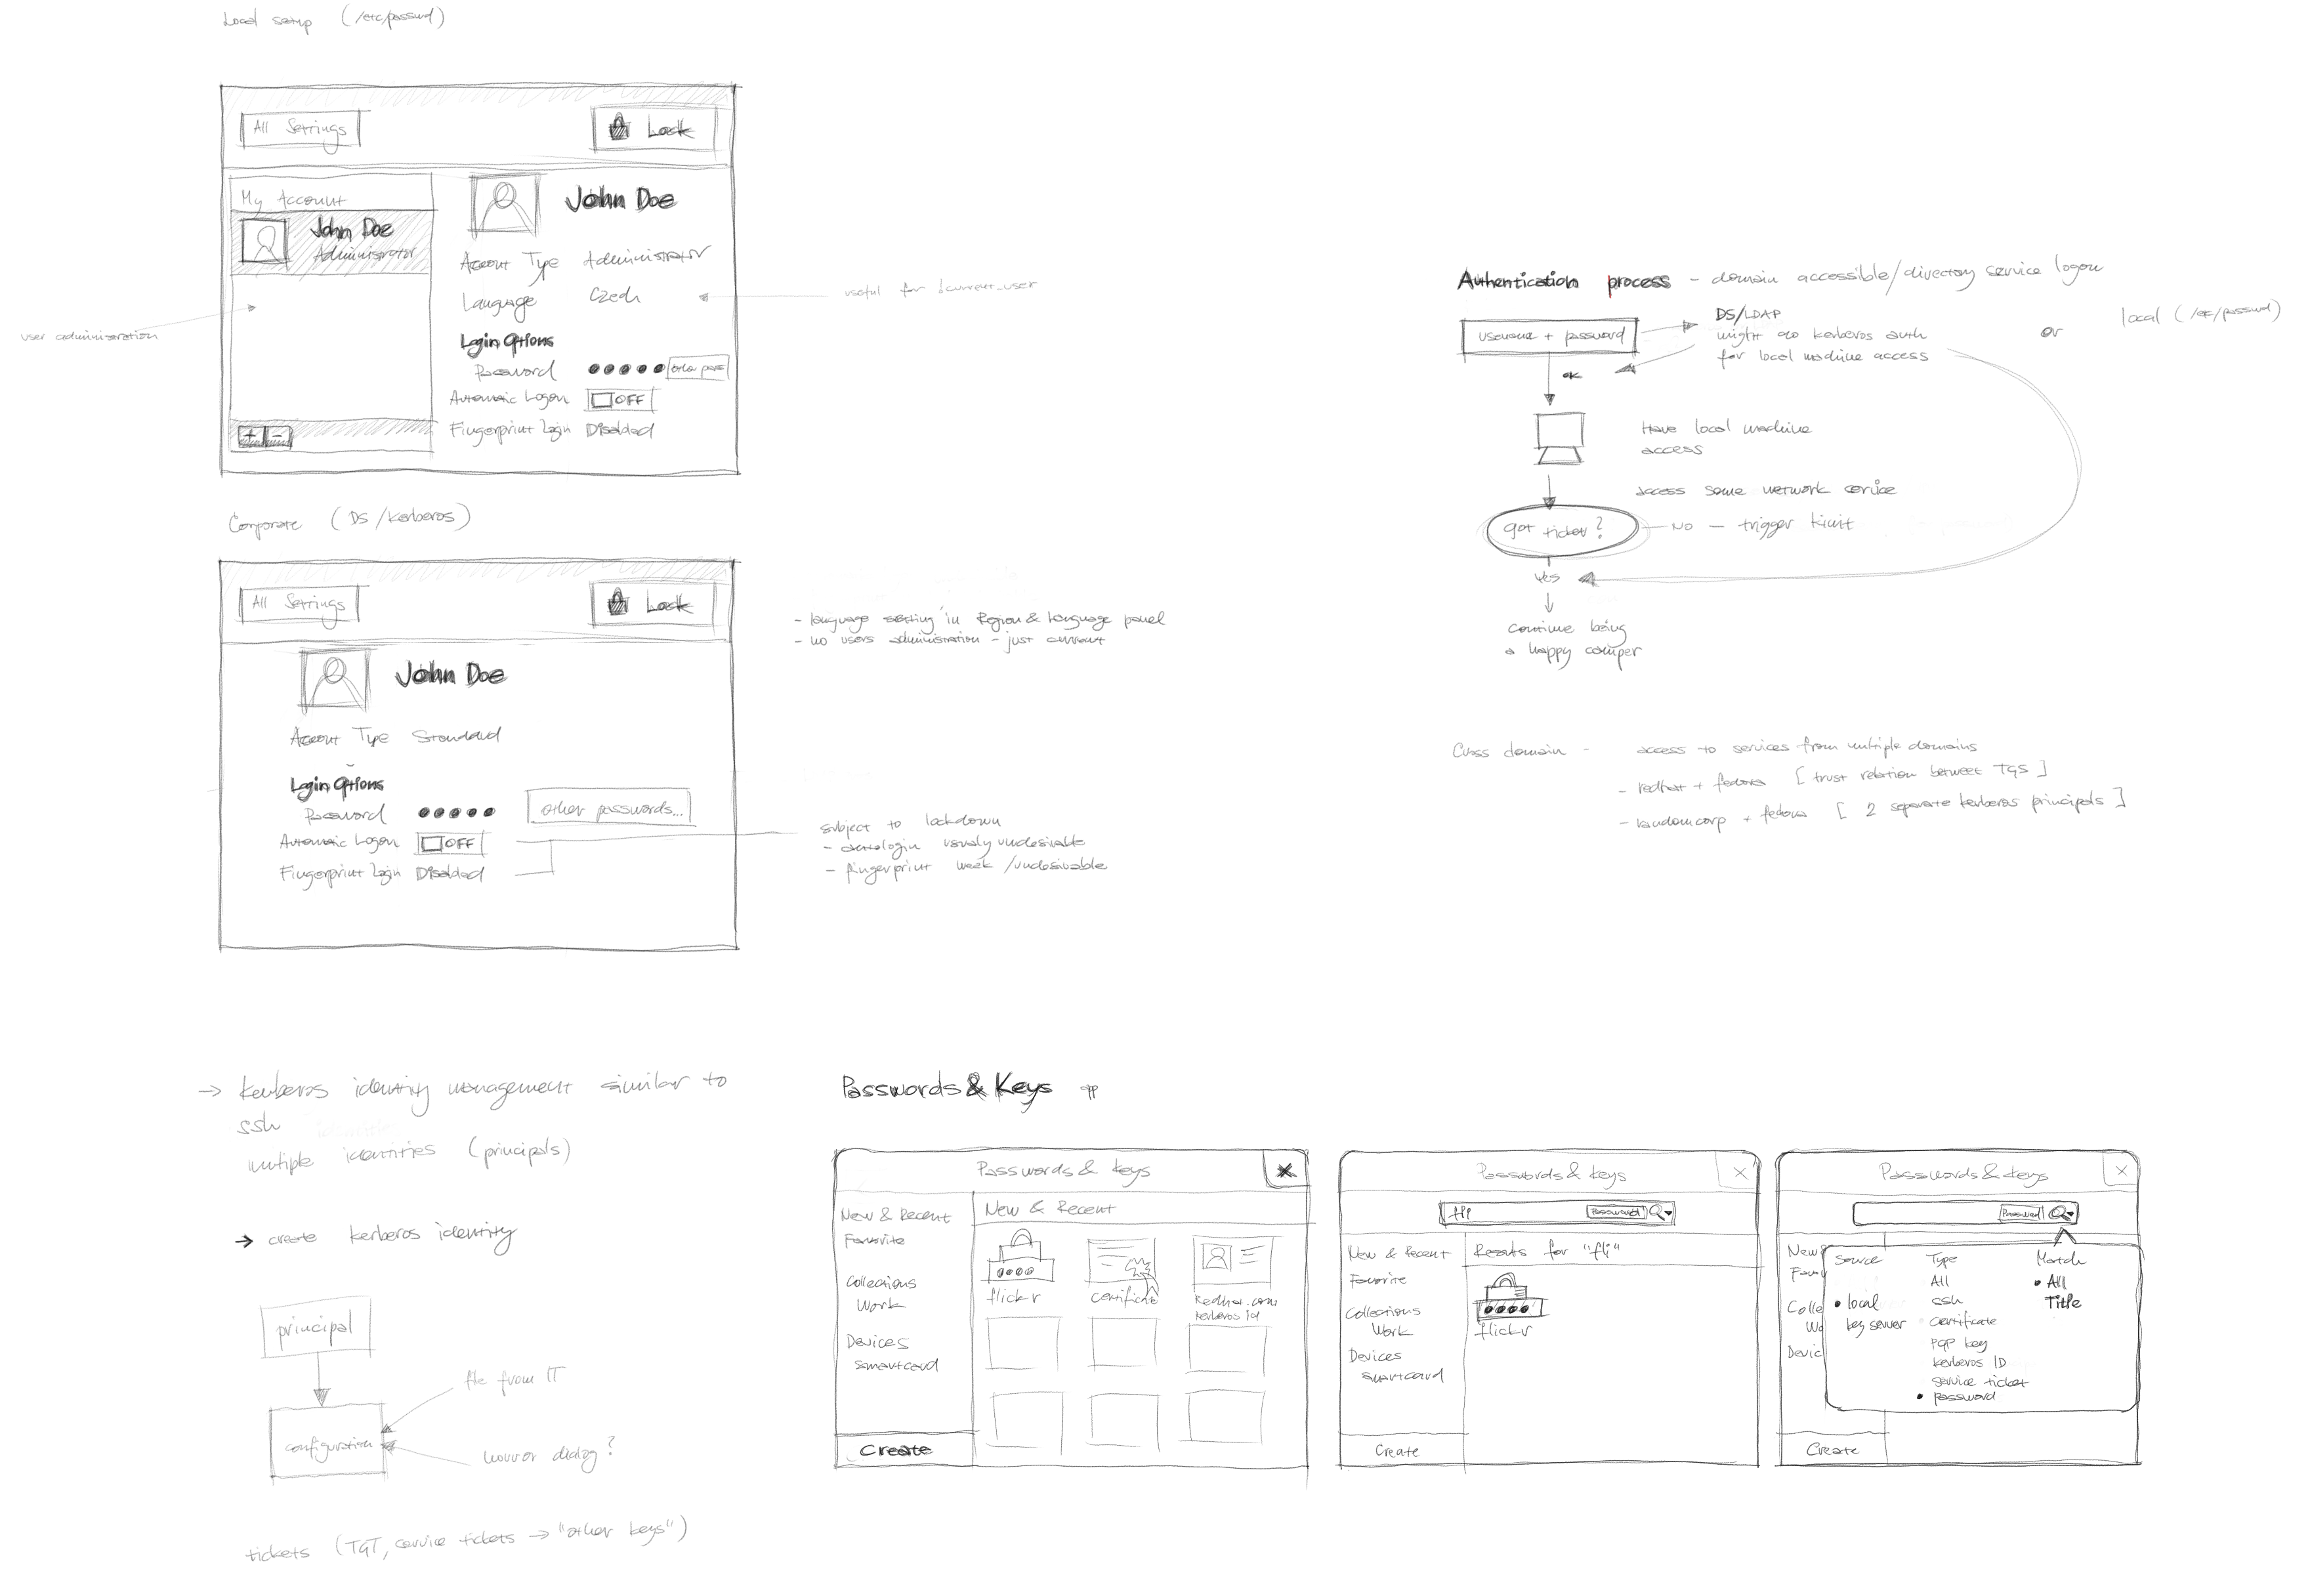 Local setup (/etc/passwd)
All Settings
Lock
My Account
John Doe
Administrator
John Doe
Account Type Administrator
Language Czech
Login Options
Password
Automatic Logon OFF
Fingerprint Login Disabled
+ -
user administration
useful for !current_user
Corporate (DS/Kerberos)
All Settings
Lock
John Doe
Account Type Standard
Login Options
Password other passwords...
Automatic Logon OFF
Fingerprint Login Disabled
- language setting in Region & Language panel
- no users administration - just current
subject to lockdown
- autologin usualy undesirable
- fingerprint week /undesirable
Authentication process - domain accessible/directory service logon
username + password
DS/LDAP
might do kerberos auth
for local machine access
or
local (/etc/passwd)
OK
Have local machine
access
access some network service
got ticket?
NO - trigger kinit
Yes
continue being
a happy camper
Cross domain - access to services from multiple domains
- redhat + fedora [trust relation between TGS]
- randomcorp + fedora [2 separate kerberos principals]
→ kerberos identity management similar to
ssh
multiple identities (principals)
→ create kerberos identity
principal
configuration
file from IT
horror dialog?
tickets (TGT, service tickets → "other keys")
Passwords & Keys app
Passwords & Keys
New & Recent
Favorite
Collections
Work
Devices
smartcard
Create
New & Recent
flickr
certificate
Redhat.com
kerberos id
Passwords & Keys
Password
New & Recent
Favorite
Collections
Work
Devices
smartcard
Create
Results for "fli"
flickr
Passwords & Keys
Password
New &
Favo
Colle
Wo
Devic
Create
Source
local
key server
Type
All
ssh
certificate
PGP key
kerberos ID
service ticket
password
Match
All
Title